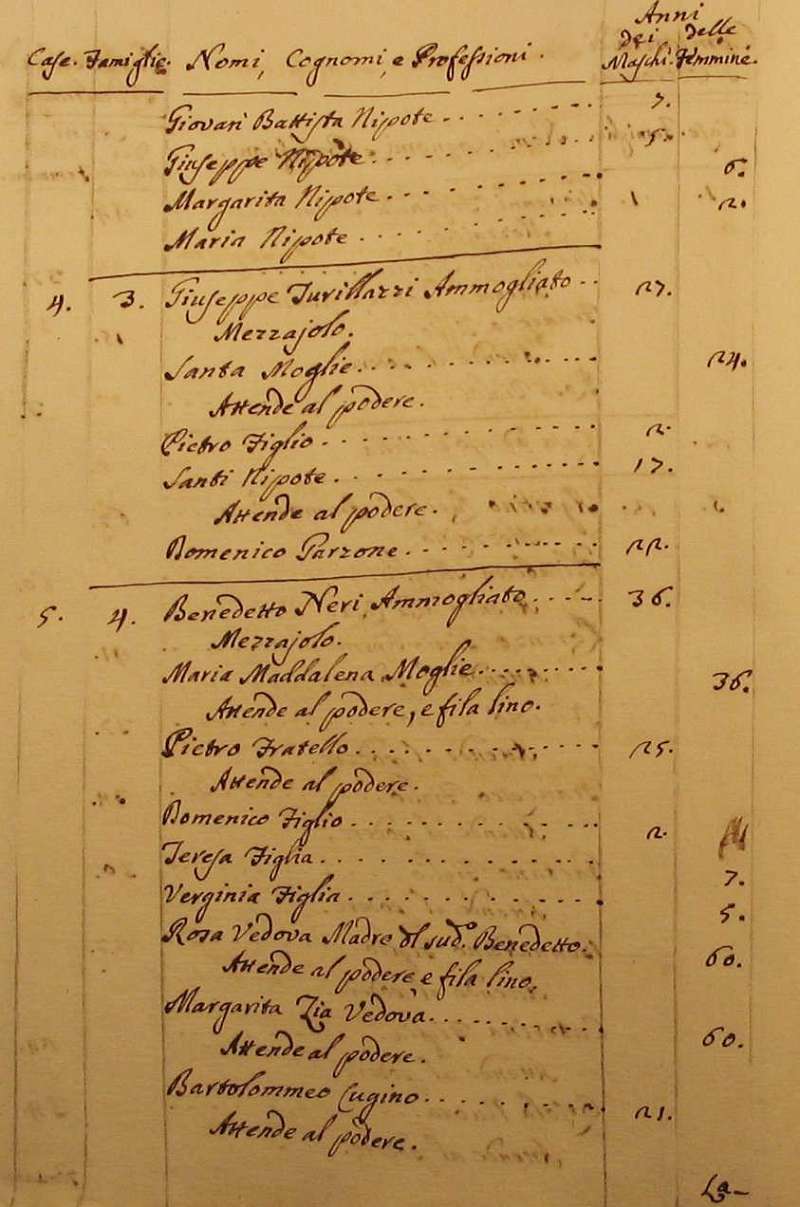 Anni
Case. Famiglie. Nomi, Cognomi, e Professioni. dei Maschi. delle Femmine.
Giovan Battista Nipote 7.
Giuseppe Nipote 5.
Margarita Nipote 6.
Maria Nipote 2.
4. 3. Giuseppe Ammogliato 27.
Mezzajolo.
Santa Moglie 24.
Attende al podere.
Pietro Figlio 2.
Santi Nipote 17.
Attende al podere.
Domenico Garzone 22.
5. 4. Benedetto Neri Ammogliato 36.
Mezzajolo.
Maria Maddalena Moglie 36.
Attende al podere, e fila lino.
Pietro Fratello 25.
Attende al podere.
Domenico Figlio 2.
Teresa Figlia 7.
Verginia Figlia 5.
Rosa Vedova Madre del sud.o Benedetto. 60.
Attende al podere e fila lino.
Margarita Zia Vedova 60.
Attende al podere.
Bartolommeo Cugino 21.
Attende al podere.